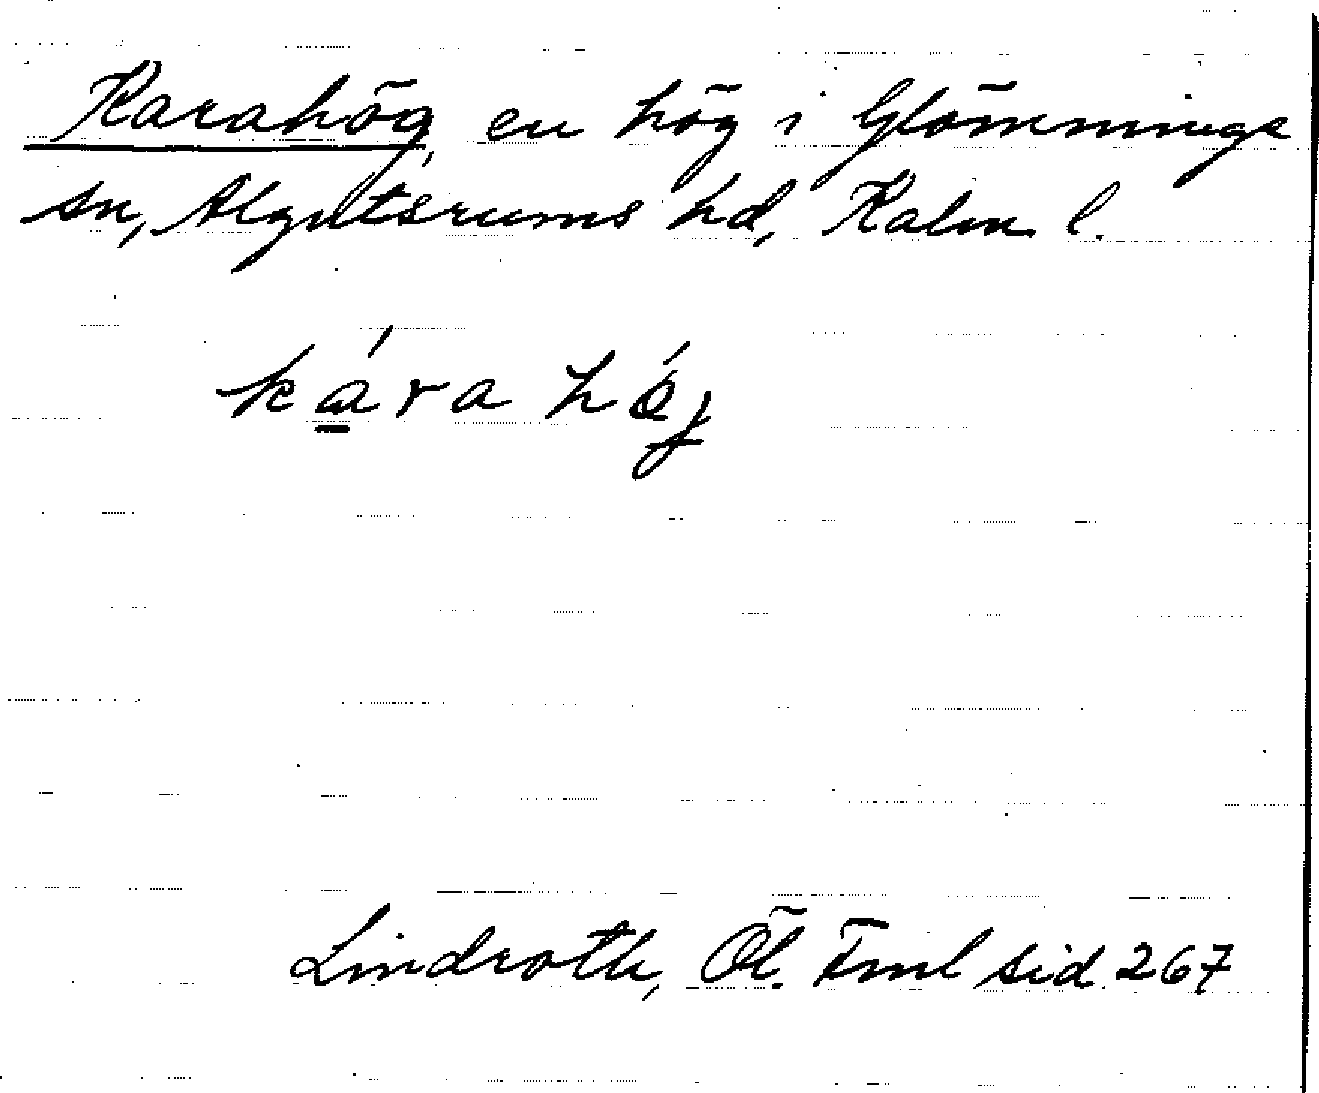 Karahög, en hög i Glömminge
sn, Algutsrums hd, Kalm. l.
kára hö́j
Lindroth, Öl. Fml sid. 267